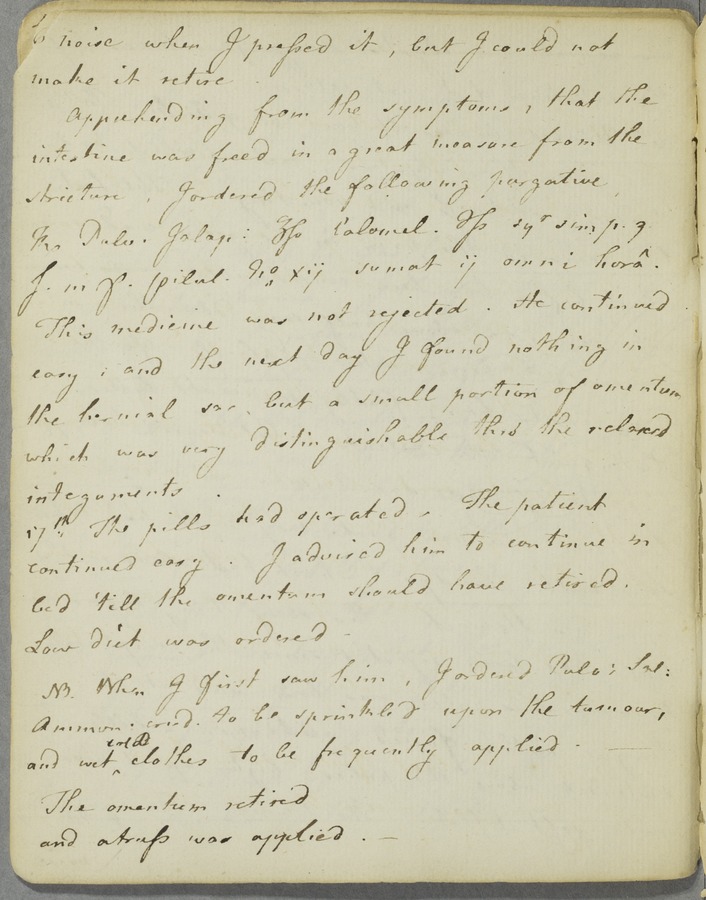 noise when I pressed it, but I could not
make it retire.
Apprehending from the symptoms, that the
intestine was freed in a great measure from the
stricture, I ordered the following purgative
Rx Pulv. Jalap: ʒss Calomel. ℈ss syr simp. q.
s. m f. pilul. No xij sumat ij omni horâ.
This medicine was not rejected. He continued
easy; and the next day I found nothing in
the hernial sac, but a small portion of omentum
which was very distinguishable thro the relaxed
integuments.
17th. The pills had operated. The patient
continued easy. I advised him to continue in
bed 'till the omentum should have retired.
Low diet was ordered -
NB. When I first saw him, I ordered Pulv: Sal:
Ammon. crud. to be sprinkled upon the tumour,
and wet cold clothes to be frequently applied. —
The omentum retired
and a truss was applied. —